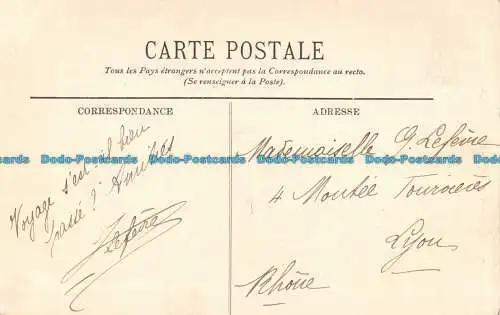 CARTE POSTALE
Tous les Pays étrangers n'acceptent pas la Correspondance au recto.
(Se renseigner à la Poste)
CORRESPONDANCE
Voyage s'est-il bien
passé ? Amitiés
Lefèvre
ADRESSE
Mademoiselle G. Lefèvre
4 Montée
Lyon
Rhône
Dodo-Postcards Dodo-Postcards Dodo-Postcards Dodo-Postcards Dodo-Postcards Dodo-Postcards